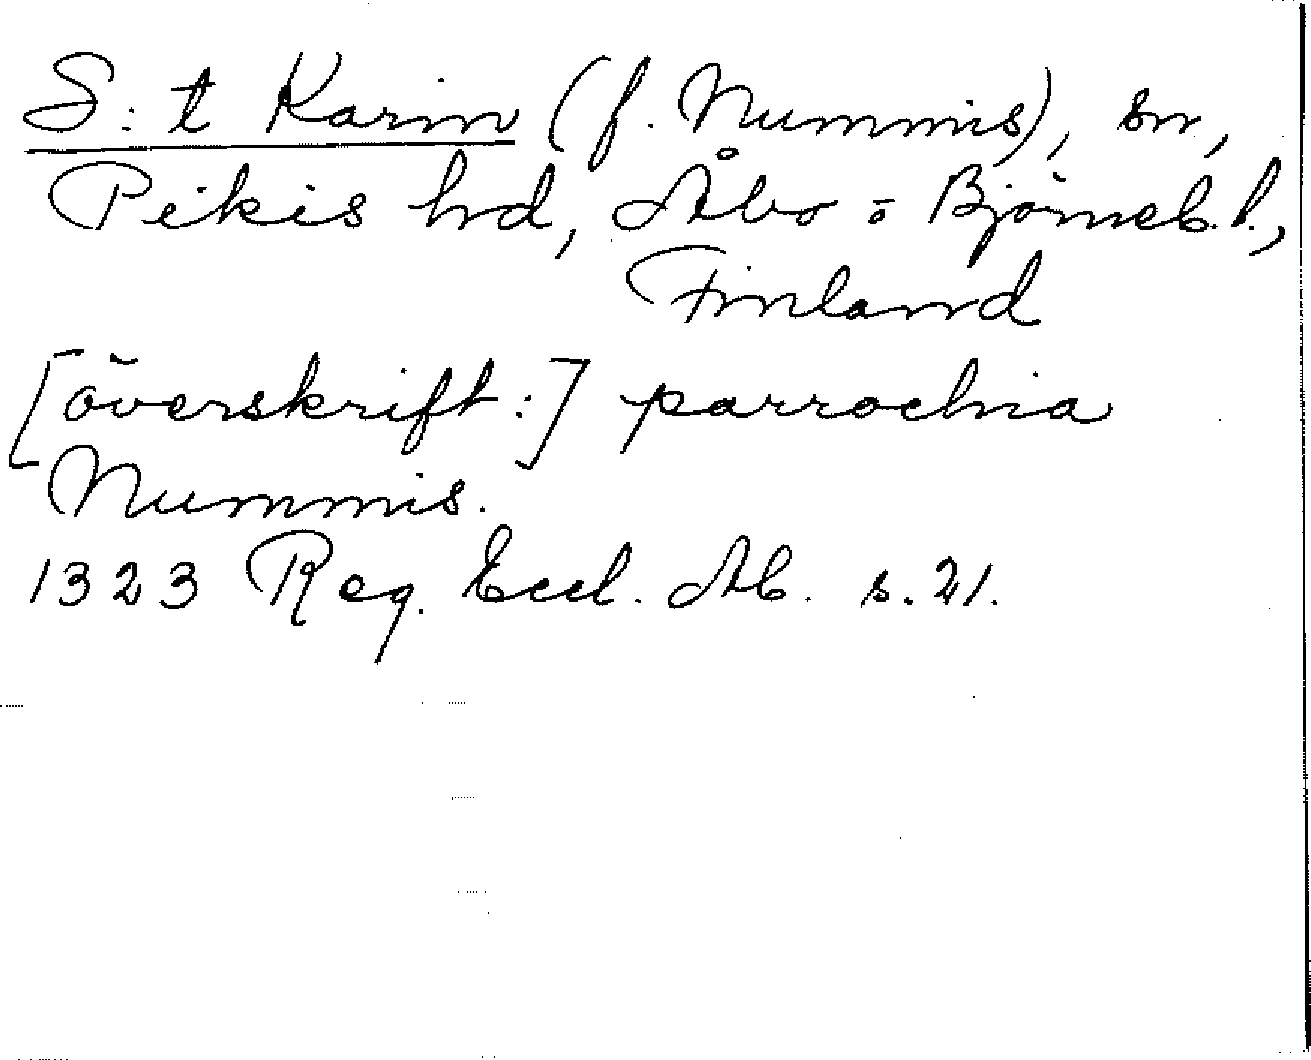 S:t Karin (f. Nummis), sn,
Pikis hd, Åbo o Björneb. l.,
Finland
[överskrift:] parrochia
Nummis.
1323 Reg. Eccl. Ab. s. 21.